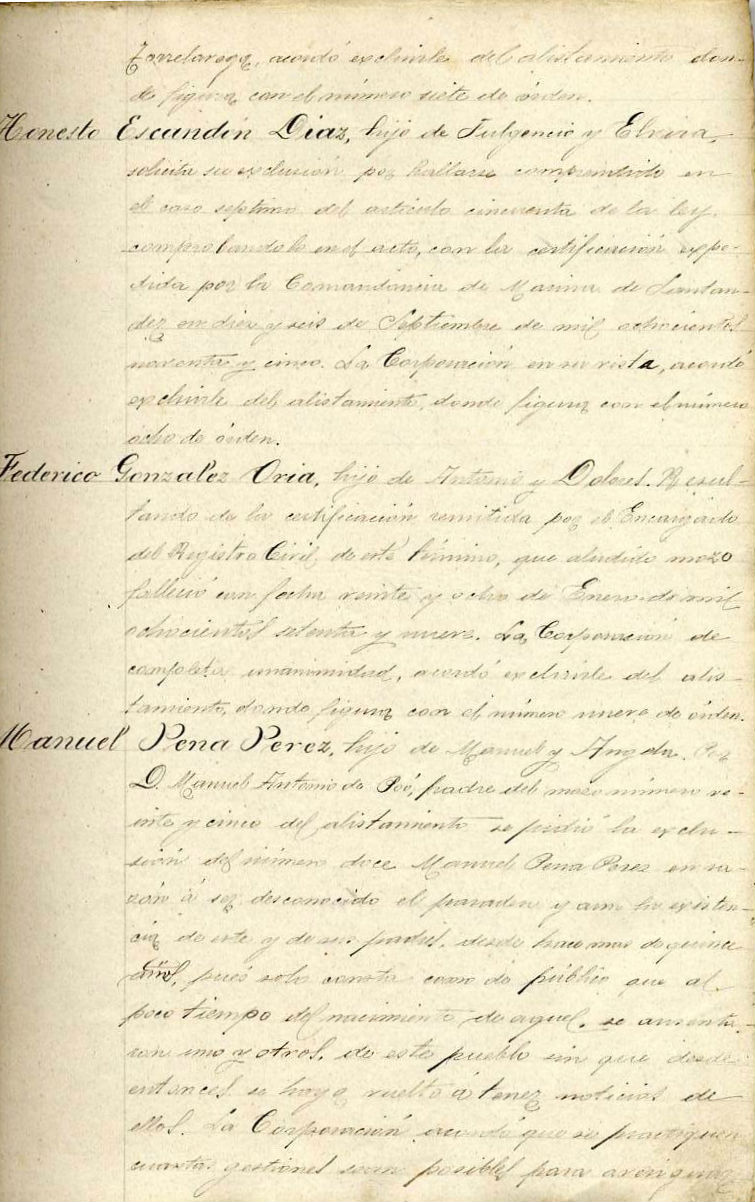 Torrelavega, acordó excluirle del alistamiento don-
de figura con el número siete de órden.
Honesto Escundín Diaz, hijo de Fulgencio y Elvira,
solicita su exclusión por hallarse comprendido en
el caso septimo del artículo cincuenta de la ley,
comprobandolo en el acto, con la certificación expe-
dida por la Comandáncia de Marina de Santan-
der en diez y seis de Septiembre de mil ochocientos
noventa y cinco. La Corporación en su vista, acordó
excluirle del alistamiento, donde figura con el número
ocho de órden.
Federico Gonzalez Oria, hijo de Antonio y Dolores. Resul-
tando de la certificación remitida por el Encargado
del Registro Civil de este término, que aludido mozo
falleció con fecha veinte y ocho de Enero de mil
ochocientos setenta y nueve. La Corporación de
completa unanimidad, acordó excluirle del alis-
tamiento, donde figura con el número nueve de órden.
Manuel Pena Perez, hijo de Manuel y Angela. Por
D. Manuel Antonio de Poó, padre del mozo número ve-
inte y cinco del alistamiento se pidió la exclu-
sión del número doce Manuel Pena Perez en ra-
zón á ser desconocido el paradero y aun la existen-
cia de este y de sus padres, desde hace mas de quince
años, pués solo consta como de público que al
poco tiempo del nacimiento de aquel, se ausenta-
ron uno y otros, de este pueblo sin que desde
entonces se haya vuelto á tener noticias de
ellos. La Corporación acordó que se practiquen
cuantas gestiones sean posibles para averiguar